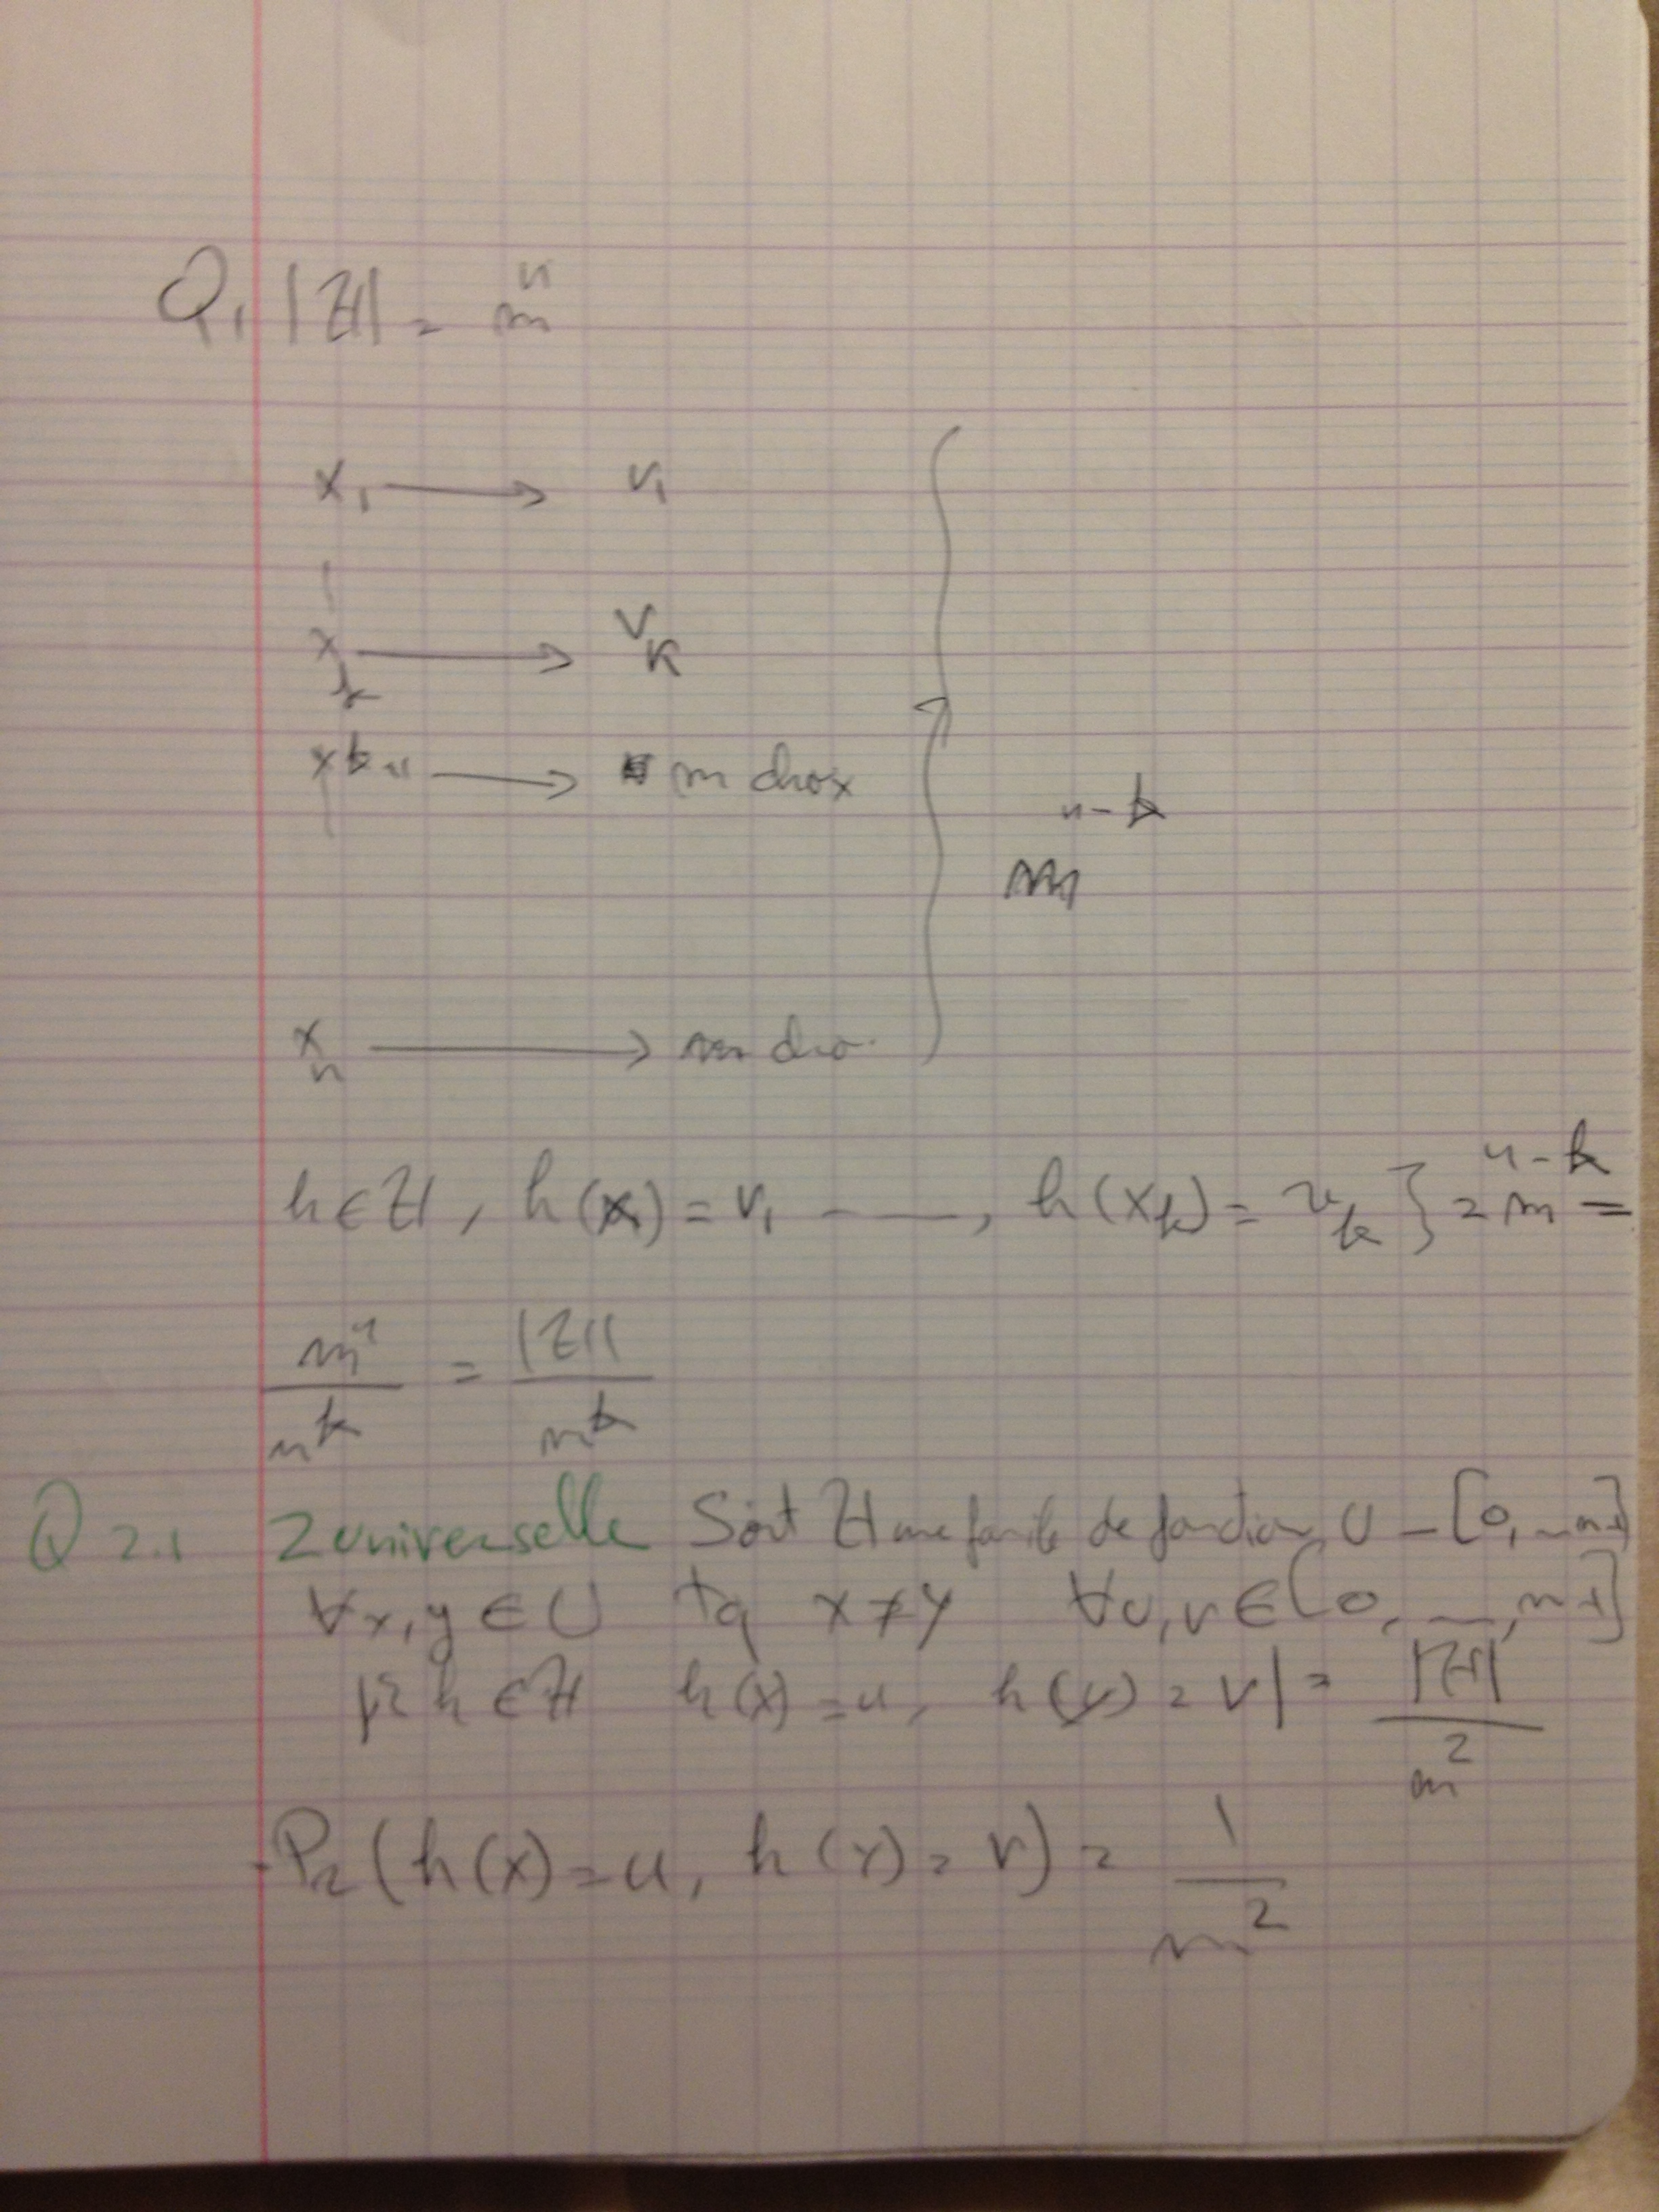 Q1 |H| = m^n
x_1 → v_1
x_k → v_k
x_{k+1} → m choix
m^{n-k}
x_n → m choi
h ∈ H, h(x_1) = v_1 —, h(x_k) = v_k } = m^{n-k} =
m^n / m^k = |H| / m^k
Q 2.1 2 universelle Soit H une famille de fonction U – [0, – m-1]
∀x,y ∈ U tq x ≠ y ∀u,v ∈ [0, –, m-1]
|{h ∈ H h(x) = u, h(y) = v| = |H| / m^2
Pr (h(x) = u, h(y) = v) = 1 / m^2